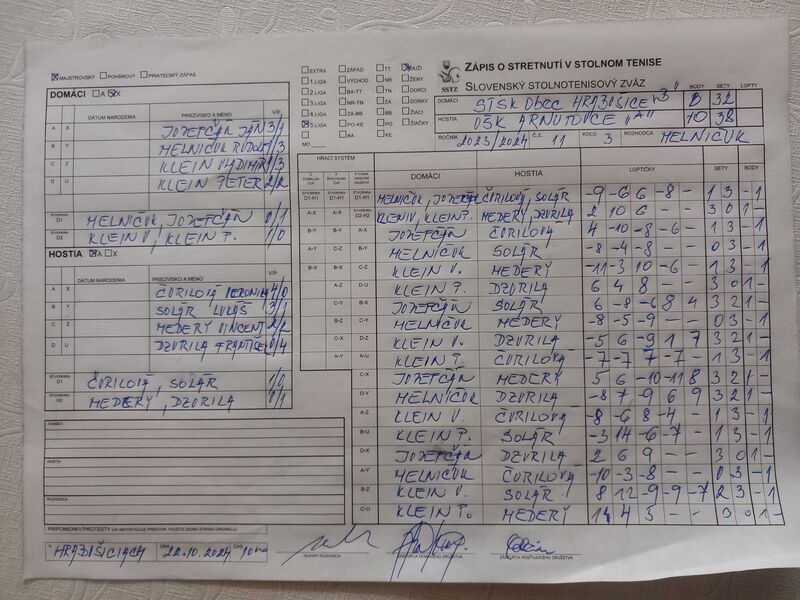 ☒ MAJSTROVSKÝ ☐ POHÁROVÝ ☐ PRIATEĽSKÝ ZÁPAS
DOMÁCI ☐A ☒X
DÁTUM NARODENIA PRIEZVISKO A MENO V/P
A X JOZEFČÁK JÁN 3/1
B Y MELNIČUK RUDOLF 1/3
C Z KLEIN VLADIMÍR 1/3
D U KLEIN PETER 2/2
ŠTVORHRA D1 MELNIČUK, JOZEFČÁK 0/1
ŠTVORHRA D2 KLEIN V., KLEIN P. 1/0
HOSTIA ☒A ☐X
DÁTUM NARODENIA PRIEZVISKO A MENO V/P
A X ČURILOVÁ VERONIKA 4/0
B Y SOLÁR LUKÁŠ 3/1
C Z MEDERÝ VINCENT 2/2
D U DZURILA FRANTIŠEK 0/4
ŠTVORHRA ČURILOVÁ, SOLÁR 1/0
ŠTVORHRA H2 MEDERÝ, DZURILA 0/1
DOMÁCI
HOSTIA
ROZHODCA
HRABUŠICIACH 22.10.2024 ČAS 10:00
☐ EXTRA ☐ ZÁPAD ☐ TT ☒ MUŽI
☐ 1.LIGA ☐ VÝCHOD ☐ NR ☐ ŽENY
☐ 2.LIGA ☐ BA-TT ☐ TN ☐ DORCI
☐ 3.LIGA ☐ NR-TN ☐ ZA ☐ DORKY
☐ 4.LIGA ☐ ZA-BB ☐ BB ☐ ŽIACI
☒ 5.LIGA ☐ PO-KE ☐ PO ☐ ŽIAČKY
☐ BA ☐ KE
MO
SSTZ
ZÁPIS O STRETNUTÍ V STOLNOM TENISE
SLOVENSKÝ STOLNOTENISOVÝ ZVÄZ
BODY SETY LOPTY
DOMÁCI STŠK OBEC HRABUŠICE "B" 8 32
HOSTIA OŠK ARNUTOVCE "A" 10 38
ROČNÍK 2023/2024 Č.Z. 11 KOLO 3 ROZHODCA MELNIČUK
HRACÍ SYSTÉM
DOMÁCI HOSTIA LOPTIČKY SETY BODY
D1-H1 D1-H1 D1-H1 MELNIČUK, JOZEFČÁK ČURILOVÁ, SOLÁR -9 -6 6 -8 - 1 3 - 1
A-X A-X D2-H2 KLEIN V., KLEIN P. MEDERÝ, DZURILA 2 10 6 - - 3 0 1 -
B-Y B-Y A-X JOZEFČÁK ČURILOVÁ 4 -10 -8 -6 - 1 3 - 1
A-Y C-Z B-Y MELNIČUK SOLÁR -8 -4 -8 - - 0 3 - 1
B-X B-X C-Z KLEIN V. MEDERÝ -11 -3 10 -6 - 1 3 - 1
A-Z D-U KLEIN P. DZURILA 6 4 8 - - 3 0 1 -
C-Y B-X JOZEFČÁK SOLÁR 6 -8 -6 8 4 3 2 1 -
B-Z C-Y MELNIČUK MEDERÝ -8 -5 -9 - - 0 3 - 1
KLEIN V. DZURILA -5 6 -9 1 7 3 2 1 -
A-Y A-U KLEIN P. ČURILOVÁ -7 -7 7 -7 - 1 3 - 1
C-X JOZEFČÁK MEDERÝ 5 6 -10 -11 8 3 2 1 -
D-Y MELNIČUK DZURILA -8 7 -9 6 9 3 2 1 -
A-Z KLEIN V. ČURILOVÁ -8 -6 8 -4 - 1 3 - 1
B-U KLEIN P. SOLÁR -3 14 -6 -7 - 1 3 - 1
D-X JOZEFČÁK DZURILA 2 6 9 - - 3 0 1 -
A-Y MELNIČUK ČURILOVÁ -10 -3 -8 - - 0 3 - 1
B-Z KLEIN V. SOLÁR 8 12 -9 -9 -7 2 3 - 1
C-U KLEIN P. MEDERÝ 14 4 5 - - 3 0 1 -
HLAVNÝ ROZHODCA ZÁSTUPCA DOMÁCEHO DRUŽSTVA ZÁSTUPCA HOSŤUJÚCEHO DRUŽSTVA